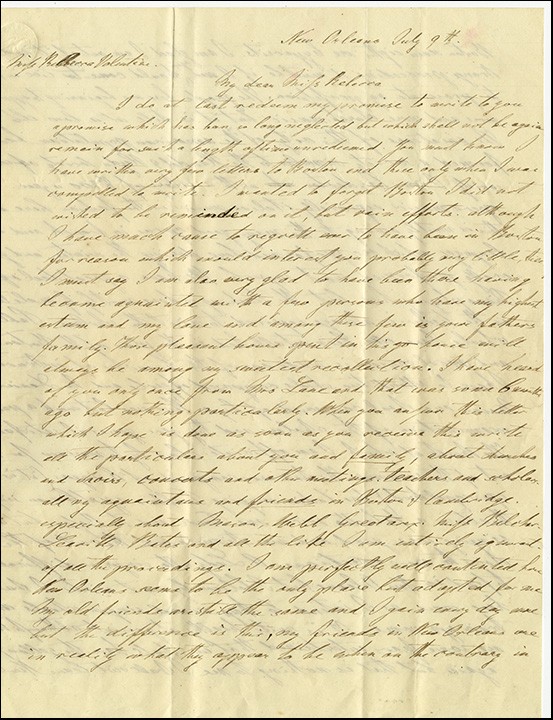 New Orleans July 9th.
Miss Rebecca Valentine.
My dear Miss Rebecca
I do at last redeem my promise to write to you
a promise which has been so long neglected but which shall not be again
remain for such a length of time unredeemed. You must know I
have written very few letters to Boston and those only when I was
compelled to write. I wanted to forget Boston I did not
wished to be reminded on it, but vain efforts. although
I have much cause to regrett ever to have been in Boston
for reason which would interest you probably very little,
I must say I am also very glad to have been there having
became aquainted with a few persons who have my highest
esteem and my love and among these few is your fathers
family. Those pleasent hours spent in his house will
always be among my sweetest recollection. I have heard
of you only once from Mrs Lane and that was some 6 months
ago but nothing particularly. When you answer this letter
which I hope is done as soon as you receive this write
all the particulars about you and family, about churches
and choirs, concerts and other meetings. teachers and scholars.
all my aquaintance and friends in Boston & Cambridge,
especially about Mason, Webb, Greatorex. Miss Belcher.
and all the like I am entirely ignorant
of all the proceedings. I am perfectly well contented here
New Orleans seems to be the only place best adapted for me
My old friends are still the same and I gain every day more
but the difference is this, my friends in New Orleans are
in reality what they appear to be when on the contrary in